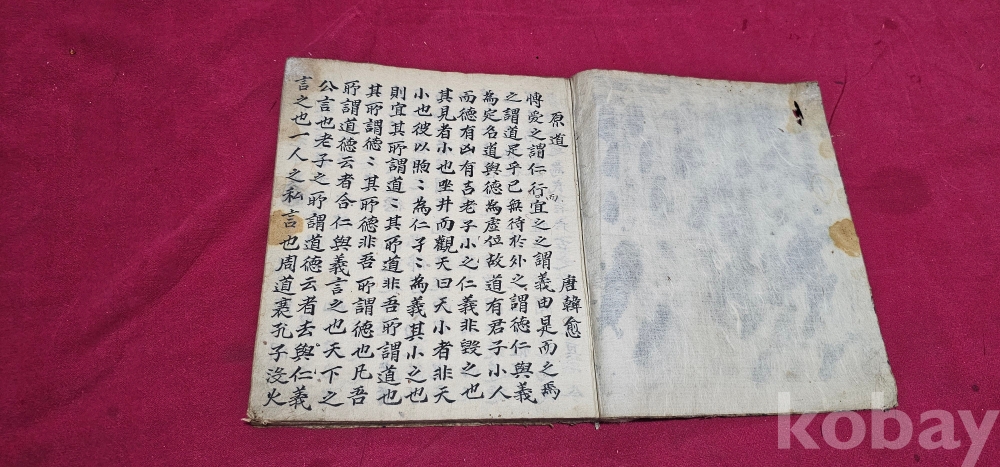 原道
唐韓愈
博愛之謂仁行而宜之之謂義由是而之焉
之謂道足乎已無待於外之謂德仁與義
為定名道與德為虛位故道有君子小人
而德有凶有吉老子小之仁義非毀之也
其見者小也坐井而觀天曰天小者非天
小也彼以煦〻為仁孑〻為義其小之也
則宜其所謂道〻其所道非吾所謂道也
其所謂德〻其所德非吾所謂德也凡吾
所謂道德云者合仁與義言之也天下之
公言也老子之所謂道德云者去與仁義
言之也一人之私言也周道衰孔子沒火
kobay